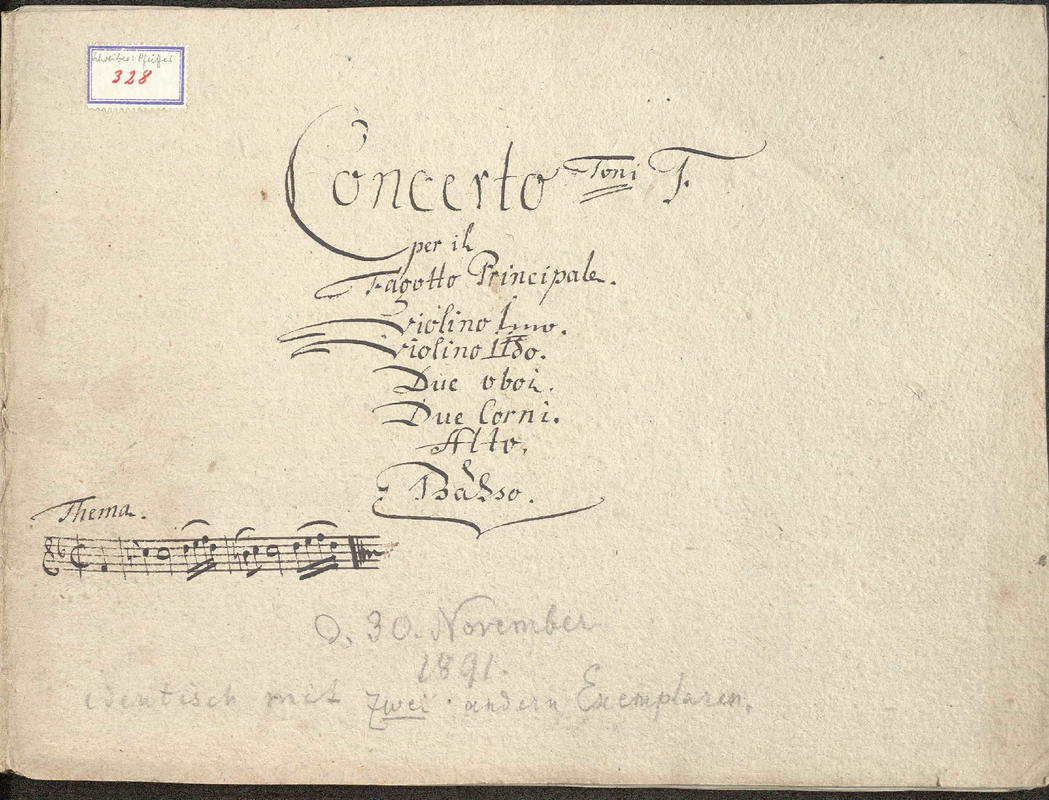 Schreiber: Pfeiffer
328
Concerto Toni F.
per il
Fagotto Principale.
Violino Imo.
Violino IIdo.
Due oboi.
Due Corni.
Alto.
è
Basso.
Thema.
d. 30. November
1891.
identisch mit zwei andern Exemplaren.